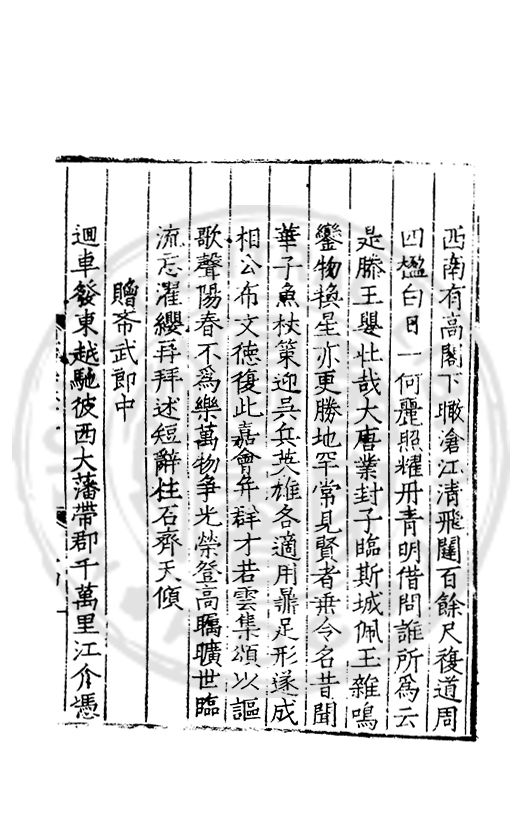 西南有高閣下瞰滄江清飛闥百餘尺復道周
四楹白日一何麗照耀丹青明借問誰所為云
是滕王嬰壯哉大唐業封子臨斯城佩玉雜鳴
鑾物換星亦更勝地罕常見賢者乘令名昔聞
華子魚杖策迎吳兵英雄各適用鼎足形遂成
相公布文德復此嘉會并群才若雲集頌以謳
歌聲陽春不為樂萬物争光榮登高矚曠世臨
流忘濯纓再拜述短辭柱石齊天傾
贈斎武郎中
迴車發東越馳彼西大藩帶郡千萬里江介憑